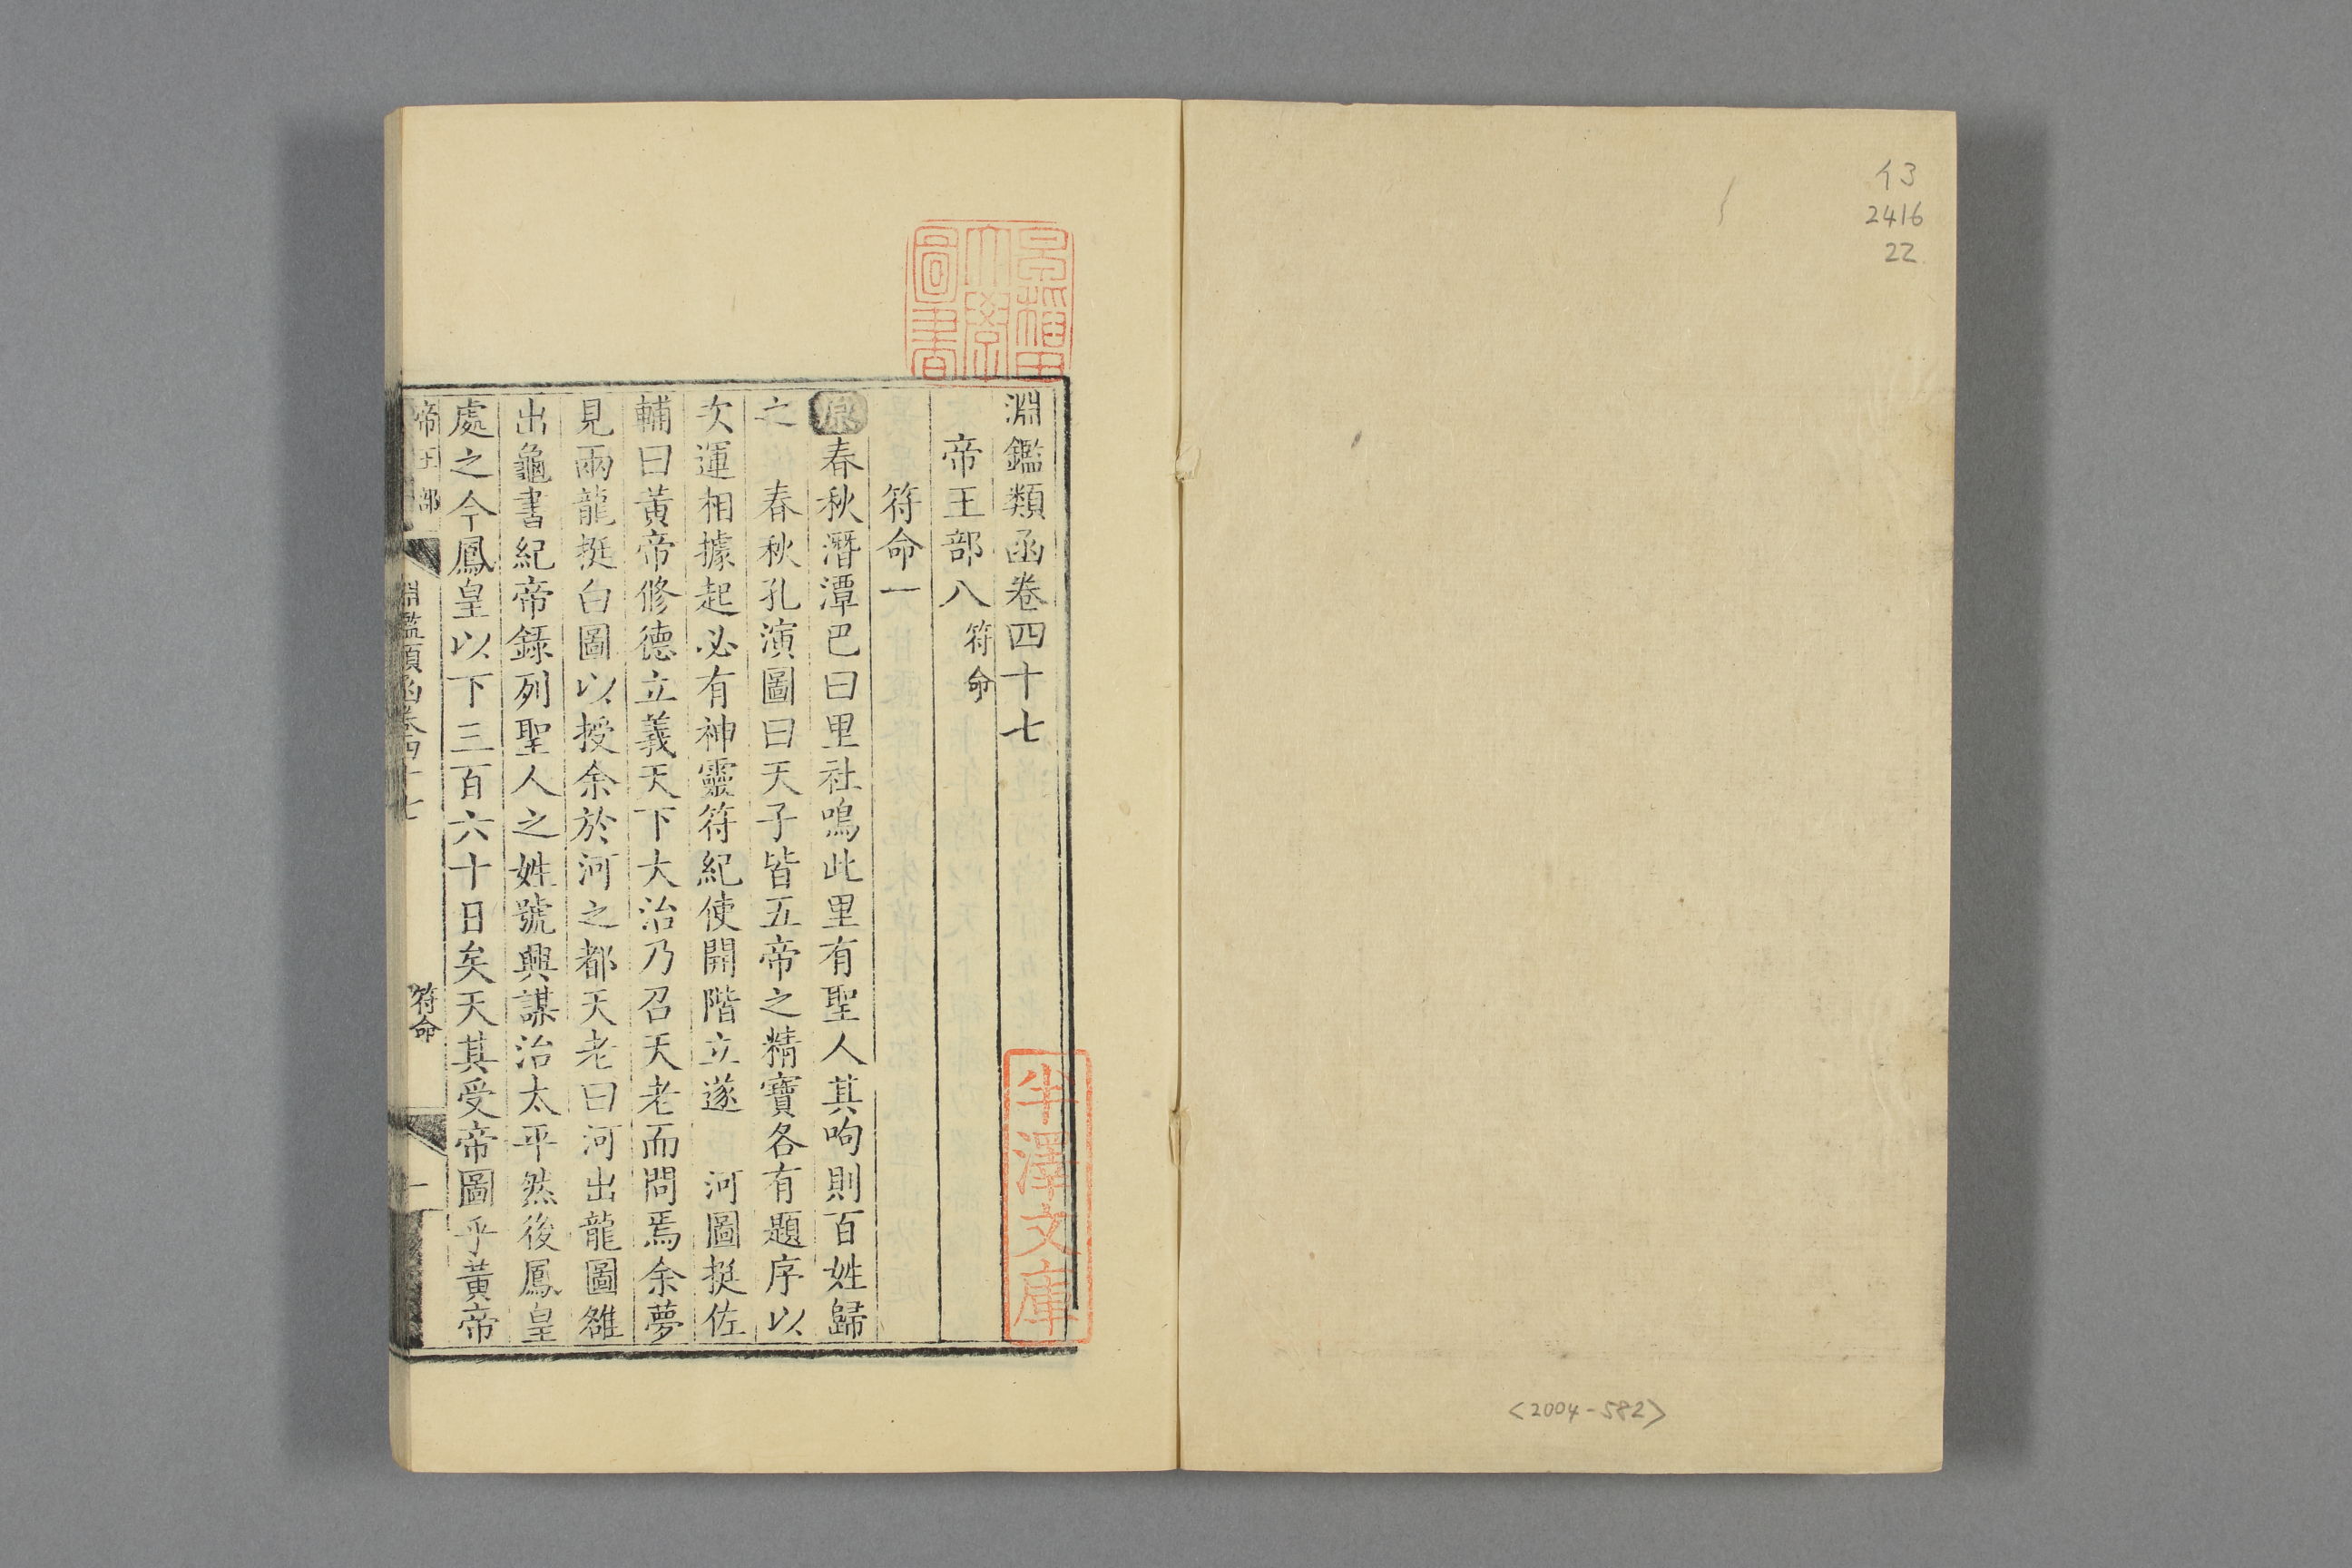 イ3
2416
22
<2004-582>
早稲田
大學
圖書
淵鑑類函卷四十七
帝王部八 符命
符命一
原 春秋潛潭巴曰里社鳴此里有聖人其呴則百姓歸
之 春秋孔演圖曰天子皆五帝之精寶各有題序以
次運相據起必有神靈符紀使開階立遂 河圖挺佐
輔曰黃帝修德立義天下大治乃召天老而問焉余夢
見兩龍挺白圖以授余於河之都天老曰河出龍圖雒
出龜書紀帝錄列聖人之姓號興謀治太平然後鳳皇
處之今鳳皇以下三百六十日矣天其受帝圖乎黃帝
帝王部 淵鑑類函卷四十七 符命 一
半澤文庫